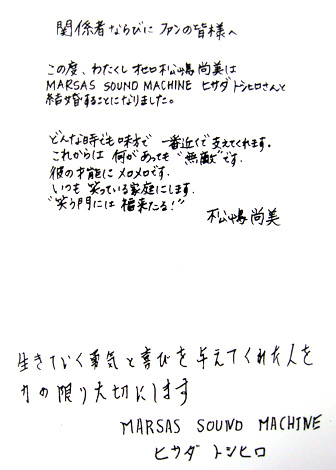 関係者ならびに ファンの皆様へ
この度、わたくし オセロ松嶋尚美は
MARSAS SOUND MACHINE ヒサダトシヒロさんと
結婚することになりました。
どんな時でも味方で 一番近くで支えてくれます。
これからは 何があっても "無敵"です.
彼の才能に メロメロです.
いつも 笑っている家庭にします.
"笑う門には 福来たる!"
松嶋尚美
生きていく勇気と喜びを与えてくれた人を
力の限り大切にします
MARSAS SOUND MACHINE
ヒサダ トシヒロ